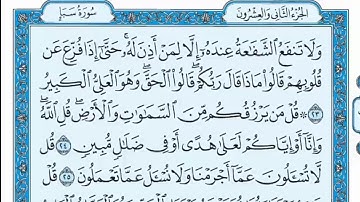 الجزء الثاني والعشرون سورة سبإ
وَلَا تَنفَعُ ٱلشَّفَٰعَةُ عِندَهُۥٓ إِلَّا لِمَنْ أَذِنَ لَهُۥ ۚ حَتَّىٰٓ إِذَا فُزِّعَ عَن
قُلُوبِهِمْ قَالُوا۟ مَاذَا قَالَ رَبُّكُمْ ۖ قَالُوا۟ ٱلْحَقَّ ۖ وَهُوَ ٱلْعَلِىُّ ٱلْكَبِيرُ
٢٣ ۞ قُلْ مَن يَرْزُقُكُم مِّنَ ٱلسَّمَٰوَٰتِ وَٱلْأَرْضِ ۖ قُلِ ٱللَّهُ ۖ
وَإِنَّآ أَوْ إِيَّاكُمْ لَعَلَىٰ هُدًى أَوْ فِى ضَلَٰلٍ مُّبِينٍ ٢٤ قُل
لَّا تُسْـَٔلُونَ عَمَّآ أَجْرَمْنَا وَلَا نُسْـَٔلُ عَمَّا تَعْمَلُونَ ٢٥ قُلْ